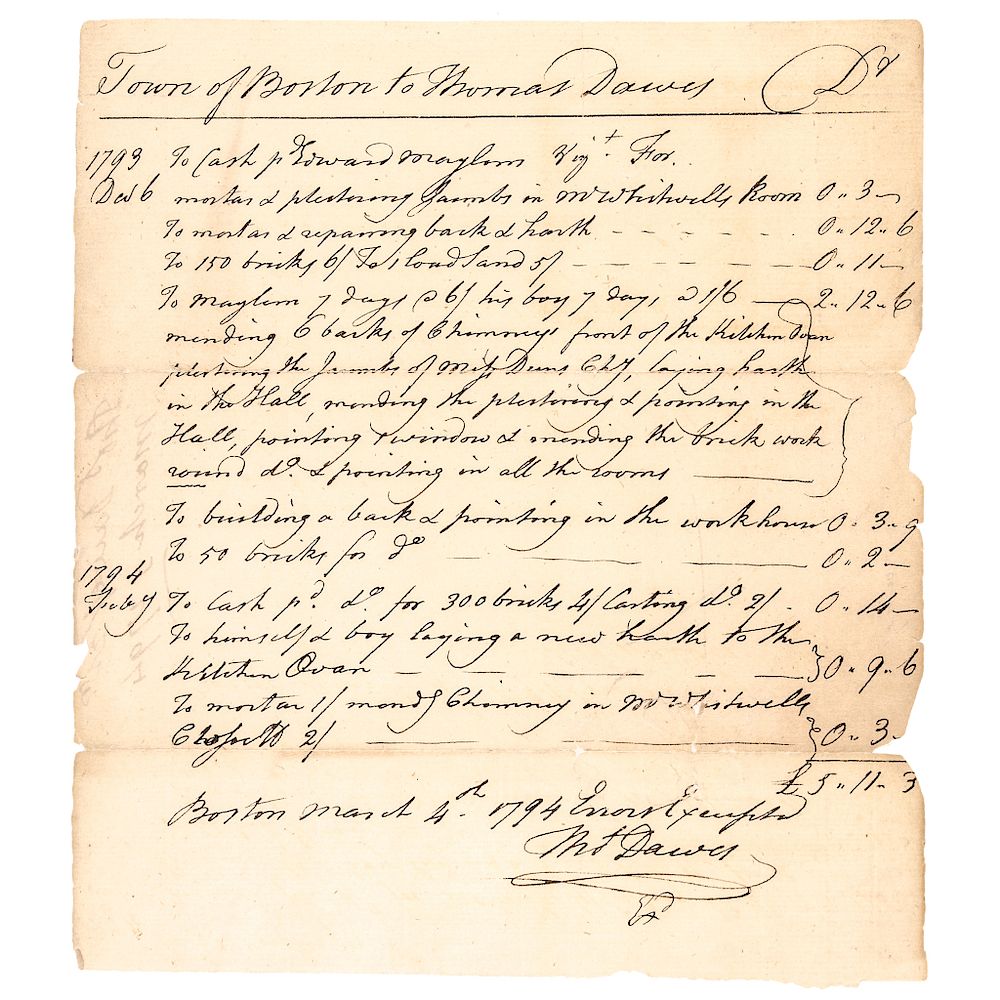 Town of Boston to Thomas Dawes Dr
1793 To Cash pd Edward Maylem Vizt. For.
Dec 6 mortar & plestering Jaumbs in Mr Whitwells Room 0" 3 —
To mortar & repairing back & harth - - - - - 0" 12" 6
To 150 bricks 6/ To 1 load Sand 5/ - - - - - 0" 11 —
To Maylem 7 days @ 6/ his boy 7 days @ 1/6 — 2" 12" 6
mending 6 backs of Chimneys front of the Kitchen Ovan
plestering the Jaumbs of Chy, laying harth
in the Hall, mending the plestering & pointing in the
Hall, pointing window & mending the brick work
round do. & pointing in all the rooms
To building a back & pointing in the workhouse 0" 3" 9
To 50 bricks for do 0" 2 —
1794
Feby To Cash pd. do. for 300 bricks 4/ Carting do. 2/ - 0" 14 —
To himself & boy laying a new harth to the
Kitchen Ovan — — — — — 0" 9" 6
To mortar 1/ mendg Chimney in Mr Whitwells
Clossett 2/ 0" 3 -
£ 5" 11" 3
Boston March 4th. 1794 Errors Excepted
Thos Dawes
Exd